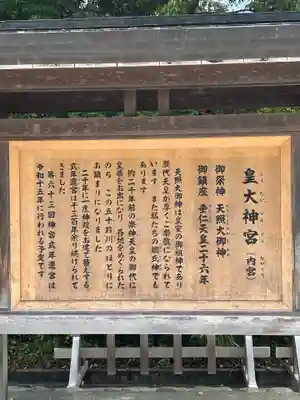 皇大神宮（内宮）
こう たい じん ぐう ない くう
御祭神 天照大御神
御鎮座 垂仁天皇二十六年
天照大御神は皇室の御祖神であり
歴代天皇が厚くご崇敬になられて
います また私たちの総氏神でも
あります
約二千年前の崇神天皇の御代に
皇居をお出になり 各地をめぐられた
のち この五十鈴川のほとりに
お鎮まりになりました
二十年に一度神殿をお建て替えする
式年遷宮は千三百年余り続けられて
きました
第六十三回神宮式年遷宮は
令和十五年に行われる予定です